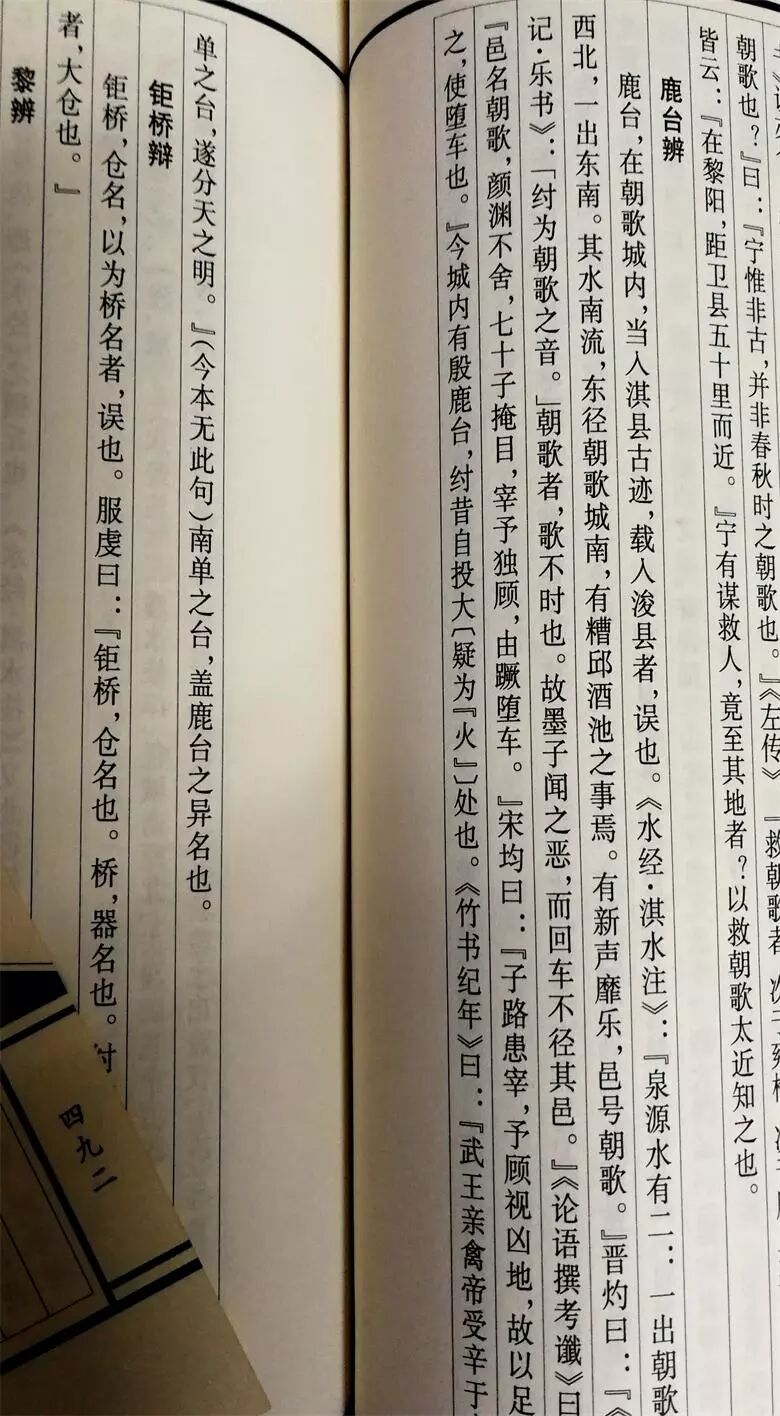 朝歌也？』曰：『宁惟非古，并非春秋时之朝歌也。』《左传》『救朝歌者，次于雍榆，
皆云：『在黎阳，距卫县五十里而近。』宁有谋救人，竟至其地者？以救朝歌太近知之也。
鹿台辨
鹿台，在朝歌城内，当入淇县古迹，载入浚县者，误也。《水经·淇水注》：『泉源水有二：一出朝歌
西北，一出东南。其水南流，东径朝歌城南，有糟邱酒池之事焉。有新声靡乐，邑号朝歌。』晋灼曰：『《
记·乐书》：「纣为朝歌之音。」朝歌者，歌不时也。故墨子闻之恶，而回车不径其邑。』《论语撰考谶》曰
『邑名朝歌，颜渊不舍，七十子掩目，宰予独顾，由蹶堕车。』宋均曰：『子路患宰，予顾视凶地，故以足
之，使堕车也。』今城内有殷鹿台，纣昔自投大〔疑为『火』〕处也。《竹书纪年》曰：『武王亲禽帝受辛于
单之台，遂分天之明。』（今本无此句）南单之台，盖鹿台之异名也。
钜桥辩
钜桥，仓名，以为桥名者，误也。服虔曰：『钜桥，仓名也。桥，器名也。
者，大仓也。』
黎辨
四九二